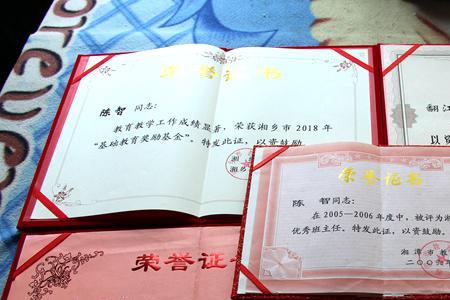 荣誉证书
陈智 同志:
教育教学工作成绩显著,荣获湘乡市2018年
“基础教育奖励基金”。特发此证,以资鼓励。
湘
湘乡
翻江
以资
荣誉证书
陈 智同志:
在2005—2006年度中,被评为湘
优秀班主任。特发此证,以资鼓励。
湘潭市教
二〇〇六年
荣誉证
forever